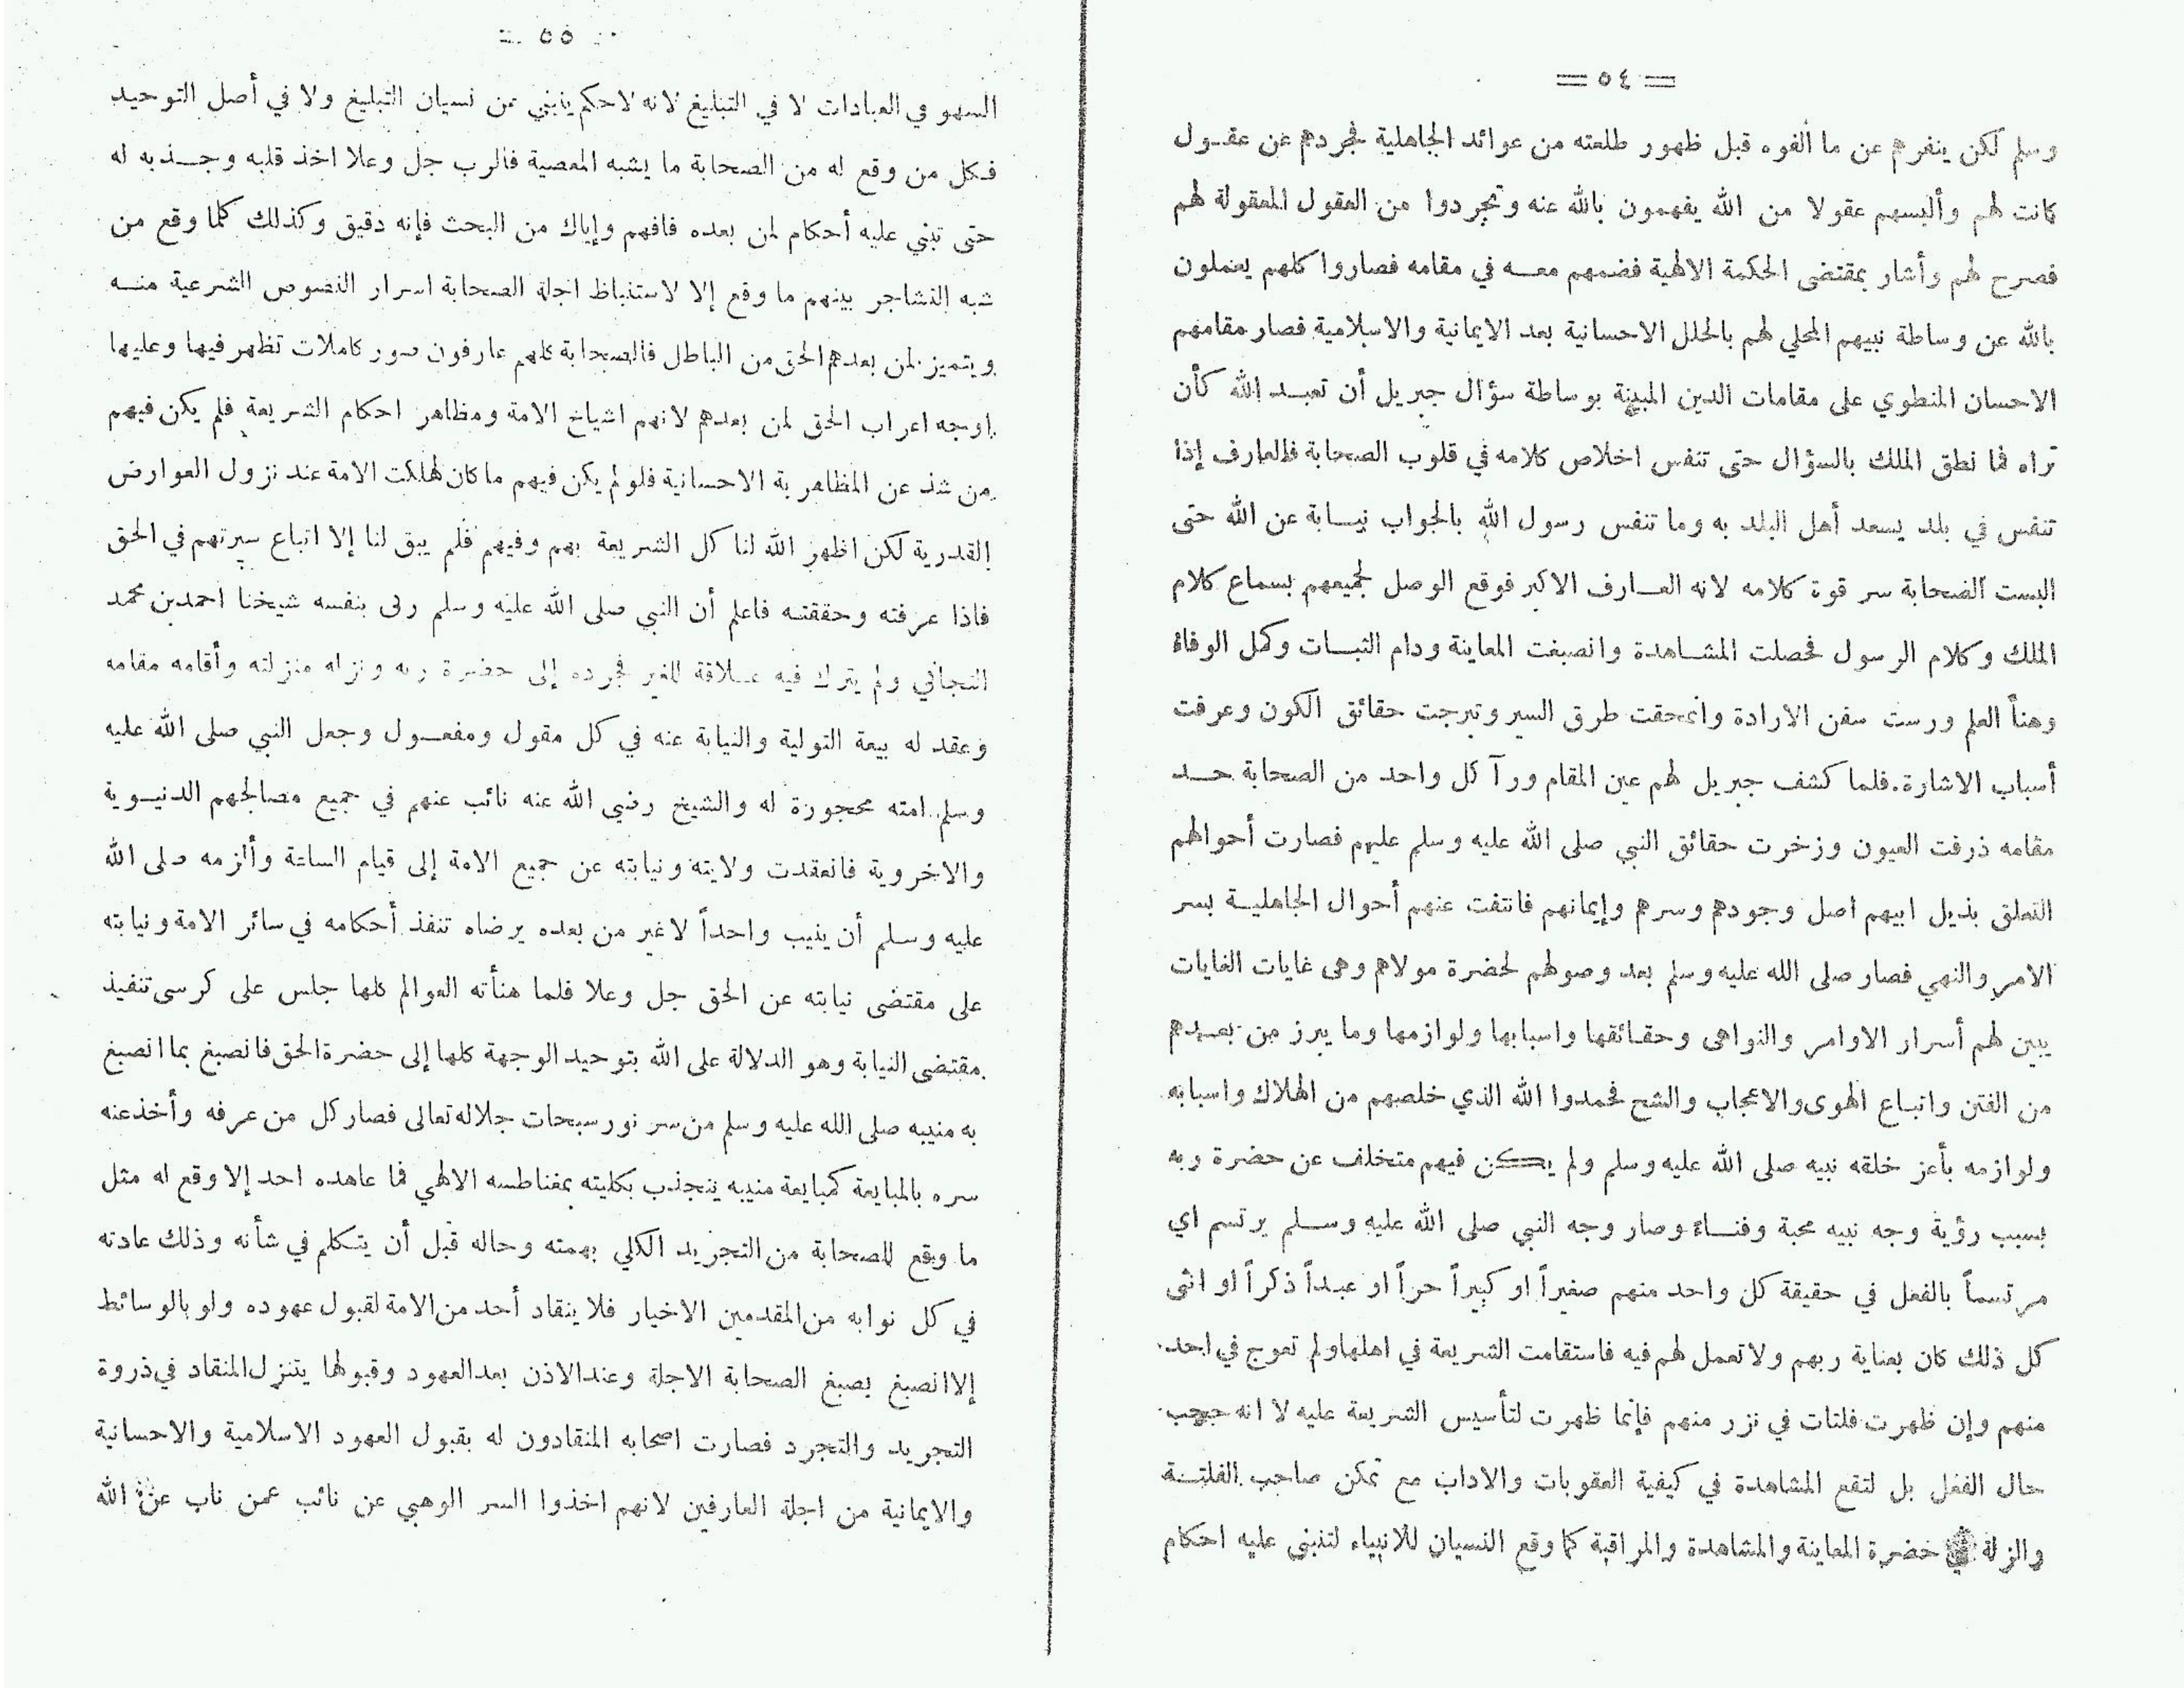 = ٥٤ =
وسلم لكن ينفرهم عن ما ألفوه قبل ظهور طلعته من عوائد الجاهلية فجردهم عن عقول
كانت لهم وألبسهم عقولا من الله يفهمون بالله عنه وتجردوا من العقول المعقولة لهم
فصرح لهم وأشار بمقتضى الحكمة الالهية فضمهم معه في مقامه فصاروا كلهم يعملون
بالله عن وساطة نبيهم المحلي لهم بالحلل الاحسانية بعد الايمانية والاسلامية فصار مقامهم
الاحسان المنطوي على مقامات الدين المبينة بوساطة سؤال جبريل أن تعبد الله كأن
تراه فما نطق الملك بالسؤال حتى تنفس اخلاص كلامه في قلوب الصحابة فالعارف إذا
تنفس في بلد يسعد أهل البلد به وما تنفس رسول الله بالجواب نيابة عن الله حتى
البست الصحابة سر قوة كلامه لانه العارف الاكبر فوقع الوصل لجميعهم بسماع كلام
الملك وكلام الرسول فحصلت المشاهدة وانصبغت المعاينة ودام الثبات وكمل الوفاء
وهنأ العلم ورست سفن الارادة وانمحقت طرق السير وتبرجت حقائق الكون وعرفت
أسباب الاشارة. فلما كشف جبريل لهم عين المقام ورآ كل واحد من الصحابة حد
مقامه ذرفت العيون وزخرت حقائق النبي صلى الله عليه وسلم عليهم فصارت أحوالهم
التعلق بذيل ابيهم اصل وجودهم وسرهم وإيمانهم فانتفت عنهم أحوال الجاهلية بسر
الامر والنهي فصار صلى الله عليه وسلم بعد وصولهم لحضرة مولاهم وهى غايات الغايات
يبين لهم أسرار الاوامر والنواهى وحقائقها واسبابها ولوازمها وما يبرز من بعدهم
من الفتن واتباع الهوى والاعجاب والشح فحمدوا الله الذي خلصهم من الهلاك واسبابه
ولوازمه بأعز خلقه نبيه صلى الله عليه وسلم ولم يكن فيهم متخلف عن حضرة ربه
بسبب رؤية وجه نبيه محبة وفناء وصار وجه النبي صلى الله عليه وسلم يرتسم اي
مرتسماً بالفعل في حقيقة كل واحد منهم صغيراً او كبيراً حراً او عبداً ذكراً او انثى
كل ذلك كان بعناية ربهم ولا تعمل لهم فيه فاستقامت الشريعة في اهلها ولم تعوج في احد
منهم وإن ظهرت فلتات في نزر منهم فإنما ظهرت لتأسيس الشريعة عليه لا انه حجب
حال الفعل بل لتقع المشاهدة في كيفية العقوبات والاداب مع تمكن صاحب الفلتة
والزلة في حضرة المعاينة والمشاهدة والمراقبة كما وقع النسيان للانبياء لتنبنى عليه احكام
= ٥٥ =
السهو في العبادات لا في التبليغ لانه لا حكم ينبني عن نسيان التبليغ ولا في أصل التوحيد
فكل من وقع له من الصحابة ما يشبه المعصية فالرب جل وعلا اخذ قلبه وجذبه له
حتى تبني عليه أحكام لمن بعده فافهم وإياك من البحث فإنه دقيق وكذلك كلما وقع من
شبه التشاجر بينهم ما وقع إلا لاستنباط اجلة الصحابة اسرار النصوص الشرعية منه
ويتميز لمن بعدهم الحق من الباطل فالصحابة كلهم عارفون صور كاملات تظهر فيها وعليها
اوجه اعراب الحق لمن بعدهم لانهم اشياخ الامة ومظاهر احكام الشريعة فلم يكن فيهم
من شذ عن المظاهرية الاحسانية فلو لم يكن فيهم ما كان لهلكت الامة عند نزول العوارض
القدرية لكن اظهر الله لنا كل الشريعة بهم وفيهم فلم يبق لنا إلا اتباع سيرتهم في الحق
فاذا عرفته وحققته فاعلم أن النبي صلى الله عليه وسلم ربى بنفسه شيخنا احمد بن محمد
التجاني ولم يترك فيه علاقة للغير فجرده إلى حضرة ربه ونزله منزلته وأقامه مقامه
وعقد له بيعة التولية والنيابة عنه في كل مقول ومفعول وجعل النبي صلى الله عليه
وسلم امته محجورة له والشيخ رضي الله عنه نائب عنهم في جميع مصالحهم الدنيوية
والاخروية فانعقدت ولايته ونيابته عن جميع الامة إلى قيام الساعة وألزمه صلى الله
عليه وسلم أن ينيب واحداً لا غير من بعده يرضاه تنفذ أحكامه في سائر الامة ونيابته
على مقتضى نيابته عن الحق جل وعلا فلما هنأته العوالم كلها جلس على كرسى تنفيذ
مقتضى النيابة وهو الدلالة على الله بتوحيد الوجهة كلها إلى حضرة الحق فانصبغ بما انصبغ
به منيبه صلى الله عليه وسلم من سر نور سبحات جلاله تعالى فصار كل من عرفه وأخذ عنه
سره بالمبايعة كمبايعة منيبه ينجذب بكليته بمغناطسه الالهي فما عاهده احد إلا وقع له مثل
ما وقع للصحابة من التجريد الكلي بهمته وحاله قبل أن يتكلم في شأنه وذلك عادته
في كل نوابه من المقدمين الاخيار فلا ينقاد أحد من الامة لقبول عهوده ولو بالوسائط
إلا انصبغ بصبغ الصحابة الاجلة وعند الاذن بعد العهود وقبولها يتنزل المنقاد في ذروة
التجريد والتجرد فصارت اصحابه المنقادون له بقبول العهود الاسلامية والاحسانية
والايمانية من اجلة العارفين لانهم اخذوا السر الوهبي عن نائب عمن ناب عن الله